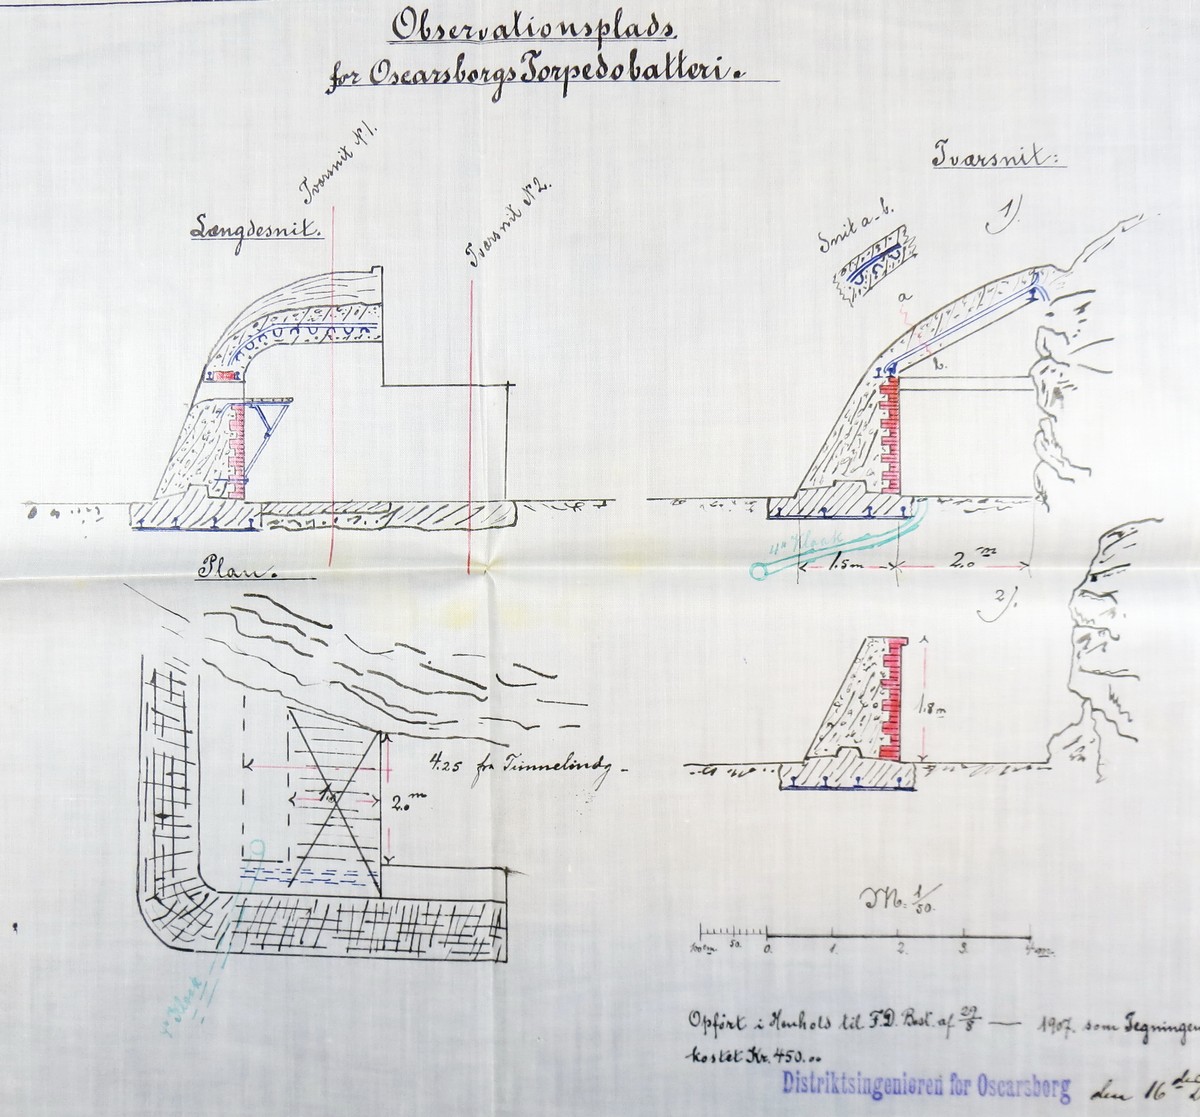 Observationsplads
for Oscarsborgs Torpedobatteri.
Tværsnit:
Tværsnit № 1.
Tværsnit № 2.
Længdesnit.
Snit a-b.
1)
a
b.
4" Kloak
1.5m
2.0 m
Plan.
2).
1.8 m
4.25 fra Tunnelindg-
2.0 m
4" Kloak
M. = 1/50.
100cm 50. 0. 1. 2. 3. 4m.
Opført i Henhold til F.D. Best. af 29/8 — 1907. som Tegningen
kostet Kr. 450.00
Distriktsingeniøren for Oscarsborg den 16 de